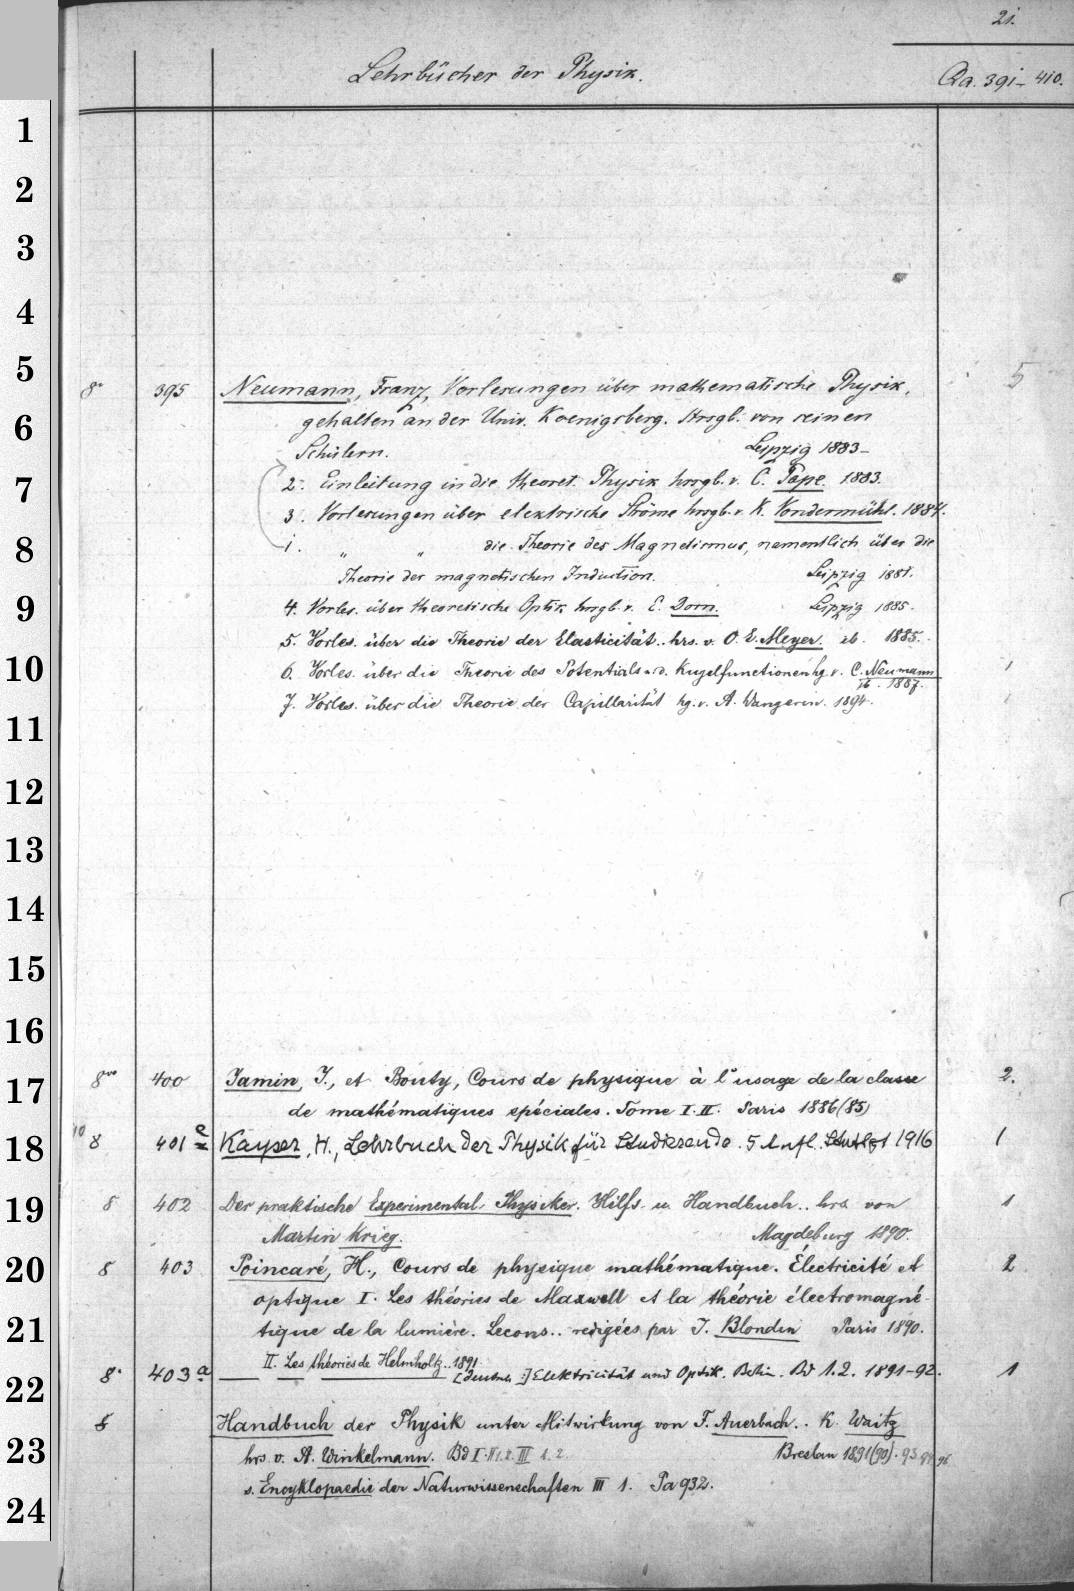 21.
Lehrbücher der Physik.
Qa. 391-410.
1
2
3
4
5
6
7
8
9
10
11
12
13
14
15
16
17
18
19
20
21
22
23
24
8° 395 Neumann, Franz, Vorlesungen über mathematische Physik, 5
gehalten an der Univ. Koenigsberg. Hrsgb. von seinen
Schülern. Leipzig 1883-
2. Einleitung in die theoret. Physik hrsgb. v. C. Pape. 1883.
3. Vorlesungen über elektrische Ströme hrsgb. v. K. Vondermühl. 1884.
1. „ „ die Theorie des Magnetismus, namentlich über die
Theorie der magnetischen Induction. Leipzig 1881.
4. Vorles. über theoretische Optik hrsgb. v. E. Dorn. Leipzig 1885.
5. Vorles. über die Theorie der Elasticität.. hrs. v. O. E. Meyer. ib. 1885.
6. Vorles. über die Theorie des Potentials u. d. Kugelfunctionen hg. v. C. Neumann 1
ib. 1887.
7. Vorles. über die Theorie der Capillarität hg. v. A. Wangerin. 1894. 1
8vo 400 Jamin, J., et Bouty, Cours de physique à l'usage de la classe 2.
de mathématiques spéciales. Tome I. II. Paris 1886(85)
10 8 401 e Kayser, H., Lehrbuch der Physik für Studierende. 5 Aufl. Stuttgt 1916 1
8 402 Der praktische Experimental-Physiker. Hilfs- u. Handbuch.. hrs von 1
Martin Krieg. Magdeburg 1890.
8 403 Poincaré, H., Cours de physique mathématique. Électricité et 2
optique I. Les théories de Maxwell et la théorie électromagné-
tique de la lumière. Lecons.. redigées par J. Blondin Paris 1890.
II. Les théories de Helmholtz.. 1891
8° 403 a [deutsch :] Elektricität und Optik. Berlin. Bd 1. 2. 1891-92. 1
8 Handbuch der Physik unter Mitwirkung von F. Auerbach.. K. Waitz
hrs. v. A. Winkelmann. Bd I. II 1. 2. III 1. 2. Breslau 1891(90). 93. 94. 96
s. Encyklopaedie der Naturwissenschaften III 1. Pa 932.